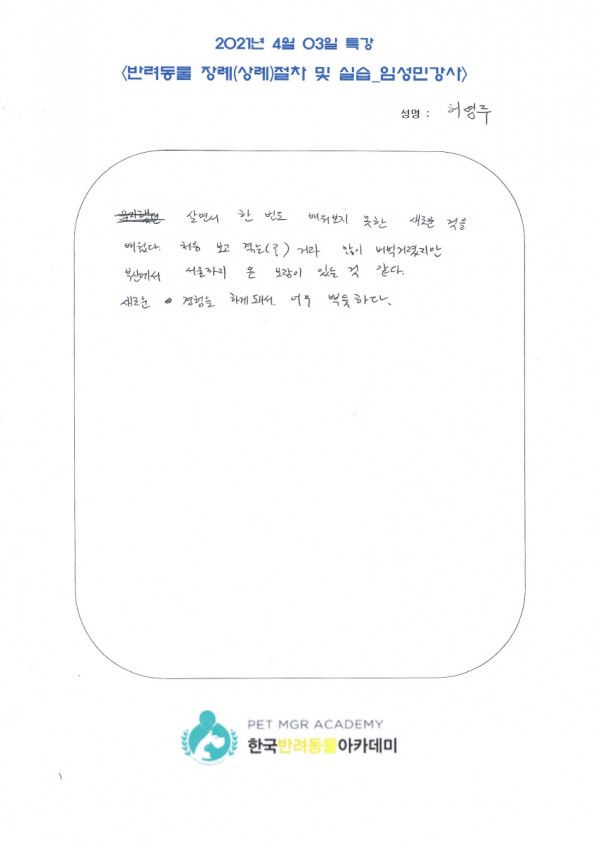 2021년 4월 03일 특강
<반려동물 장례(상례)절차 및 실습_임성민강사>
성명 : 허영주
살면서 한 번도 배워보지 못한 새로운 것을
배웠다. 처음 보고 겪는(?) 거라 많이 버벅거렸지만
부산에서 서울까지 온 보람이 있는 것 같다.
새로운 경험을 하게 돼서 너무 뿌듯하다.
PET MGR ACADEMY
한국반려동물아카데미